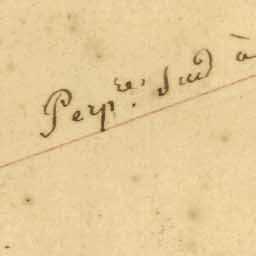 Perp.re Sud à